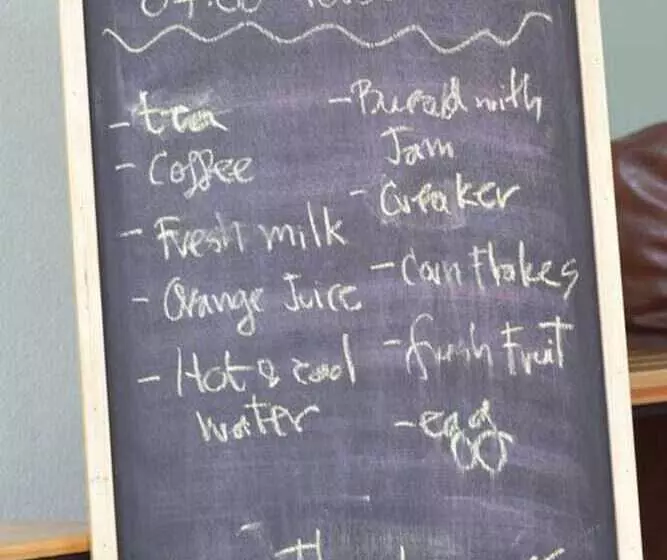 - tea
- Coffee
- Fresh milk
- Orange Juice
- Hot & cood
water
- Buread with
Jam
- Creaker
- Cornflakes
- fresh Fruit
- egg